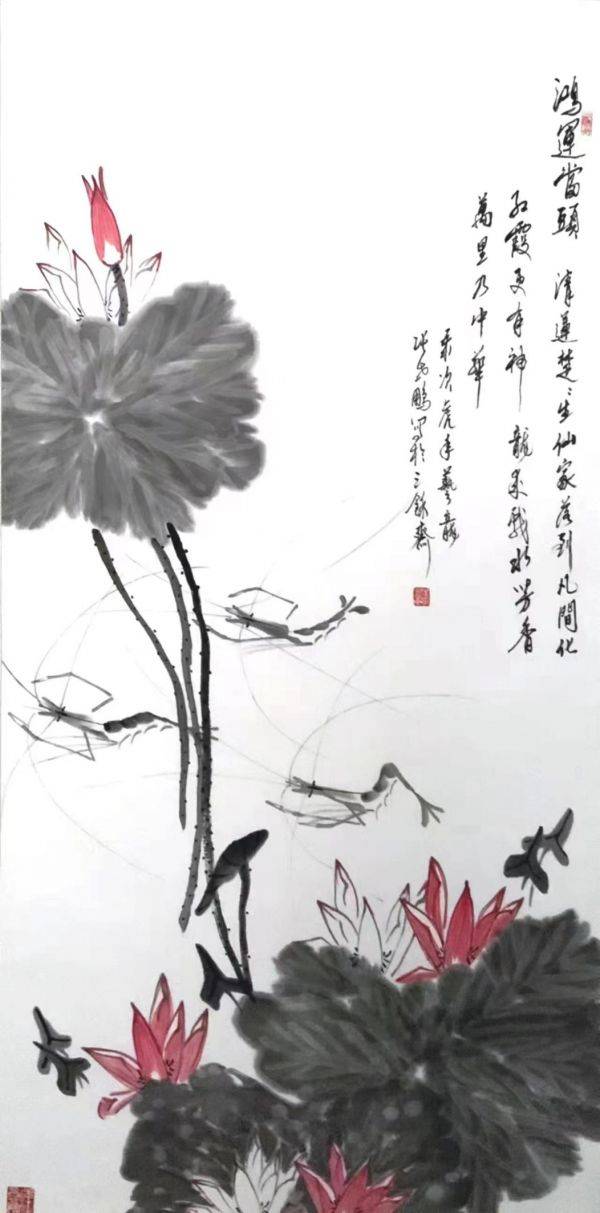 鴻運當頭 清蓮楚楚生仙家落到凡間化
紅霞更有神龍來戲水芳香
萬里乃中華
歲次虎年藝龍
張鵬寫於三餘齋